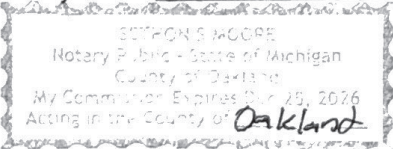 S MOORE
Notary Public - State of Michigan
County of Oakland
My Commission Expires 25, 2026
Acting in the County of Oakland